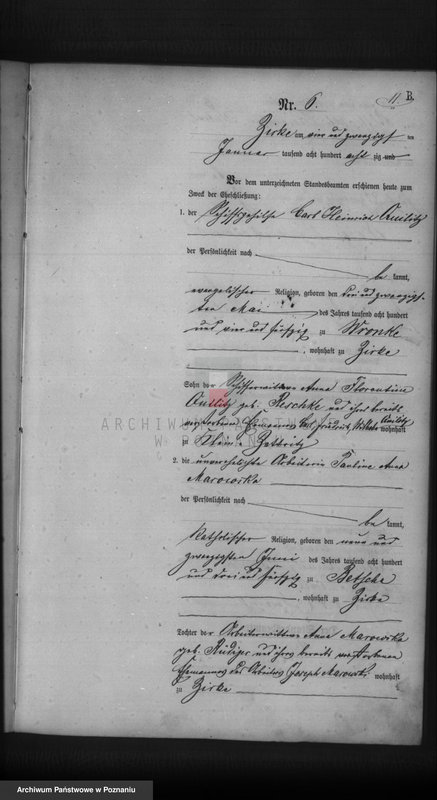 11. B.
Nr. 6.
Zirke am vier und zwanzigsten
Januar tausend acht hundert acht zig und
Vor dem unterzeichneten Standesbeamten erschienen heute zum
Zweck der Eheschließung:
1. der Schiffsgehülfe Carl Heinrich
der Persönlichkeit nach
be kannt,
evangelischer Religion, geboren den drei und zwanzig-
sten Mai des Jahres tausend acht hundert
und vier und fünfzig zu Wronke
, wohnhaft zu Zirke
Sohn der Schifferwittwe Anna Florentine
geb. Reschke und ihres bereits
verstorbenen Ehemannes Carl Friedrich wohnhaft
zu Klein
2. die unverehelichte Arbeiterin Pauline Anna
Marowska
der Persönlichkeit nach
be kannt,
katholischer Religion, geboren den neun und
zwanzigsten Juni des Jahres tausend acht hundert
und drei und fünfzig zu Betsche
, wohnhaft zu Zirke
Tochter der Arbeiterwittwe Anna Marowska
geb. Rüdiger und ihres bereits verstorbenen
Ehemannes des Arbeiters Joseph Marowski wohnhaft
zu Zirke
ARCHIWUM PAŃSTWOWE
W POZNANIU
Archiwum Państwowe w Poznaniu